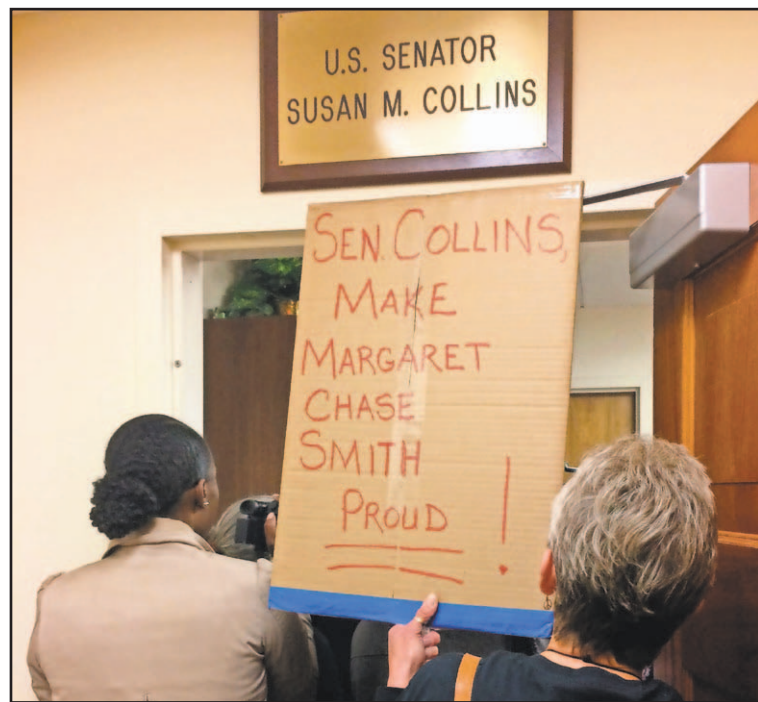 U.S. SENATOR
SUSAN M. COLLINS
SEN. COLLINS,
MAKE
MARGARET
CHASE
SMITH
PROUD !